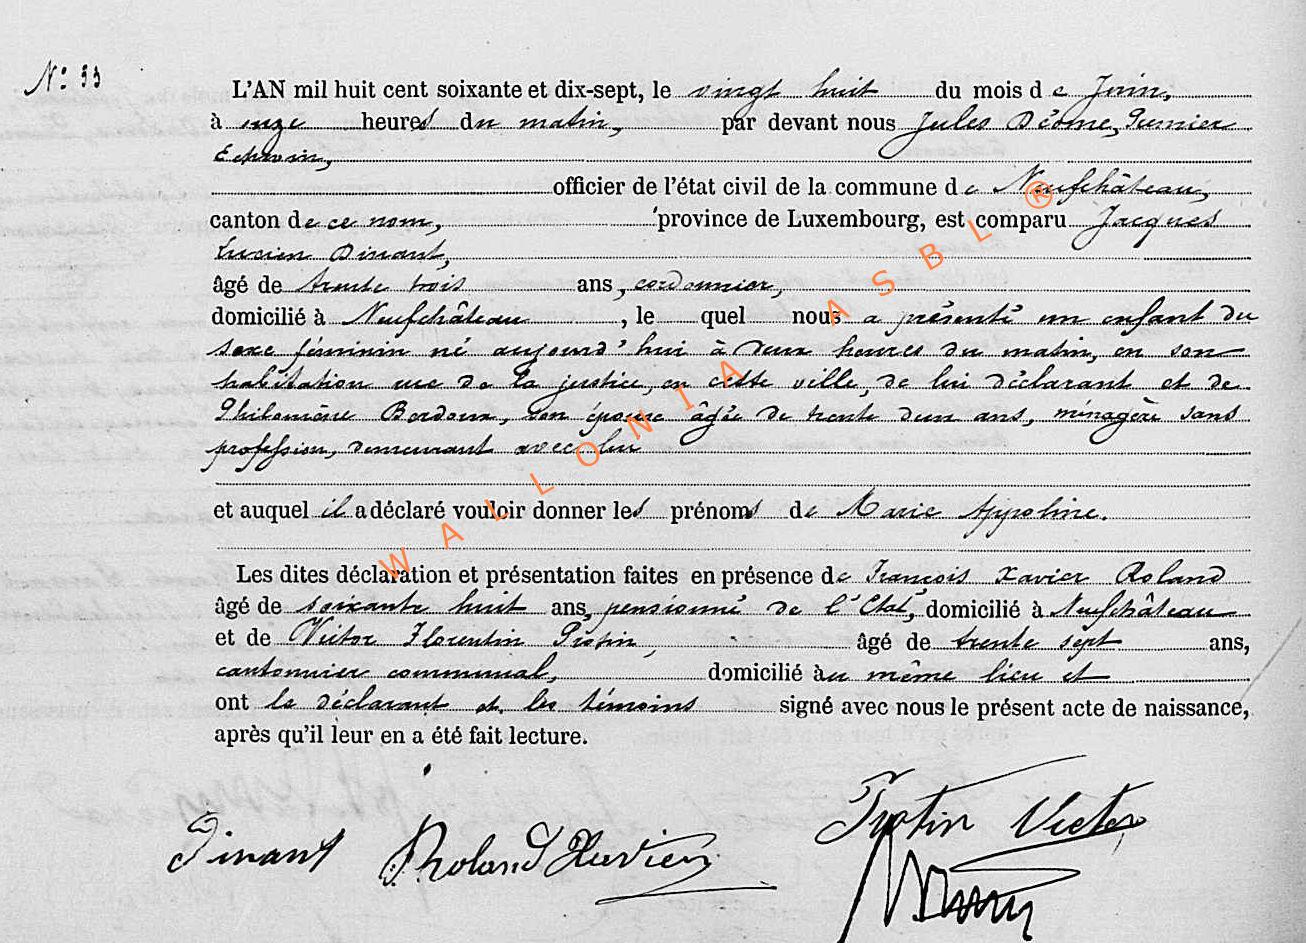 N° 33
L'AN mil huit cent soixante et dix-sept, le vingt huit du mois de Juin,
à onze heures du matin, par devant nous Jules Déome, Premier
Echevin,
officier de l'état civil de la commune de Neufchâteau,
canton de ce nom, province de Luxembourg, est comparu Jacques
Lucien Dinant,
âgé de trente trois ans, cordonnier,
domicilié à Neufchâteau, le quel nous a présenté un enfant du
sexe féminin né aujourd'hui à deux heures du matin, en son
habitation rue de la justice, en cette ville, de lui déclarant et de
Philomène Bordoux, son épouse âgée de trente deux ans, ménagère sans
profession, demeurant avec lui
et auquel il a déclaré vouloir donner les prénoms de Marie Appoline.
Les dites déclaration et présentation faites en présence de François Xavier Roland
âgé de soixante huit ans, pensionné de l'Etat, domicilié à Neufchâteau
et de Victor Florentin Pistin, âgé de trente sept ans,
cantonnier communal, domicilié au même lieu et
ont le déclarant et les témoins signé avec nous le présent acte de naissance,
après qu'il leur en a été fait lecture.
Dinant Roland Xavier Victor
WALLONIA ASBL ®